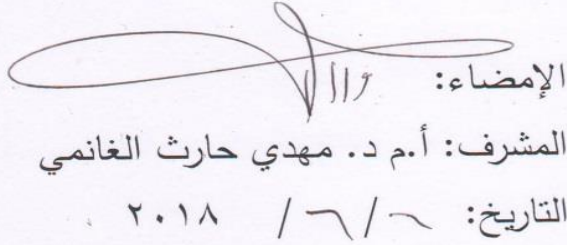 الإمضاء:
المشرف: أ.م د. مهدي حارث الغانمي
التاريخ: / ٦ / ٢٠١٨